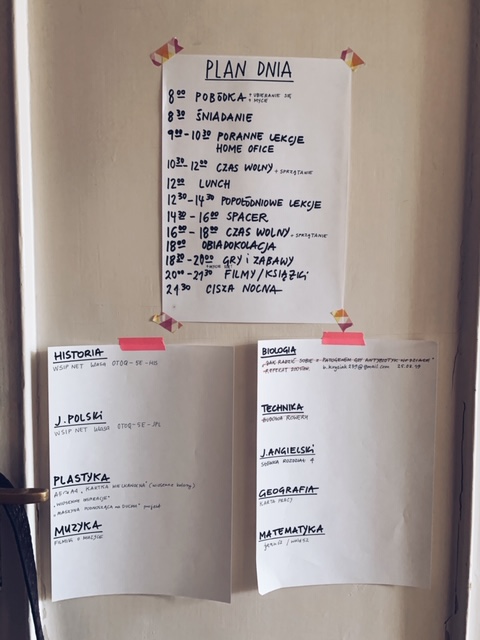 PLAN DNIA
8⁰⁰ POBÓDKA : UBIERANIE SIĘ
MYCIE
8³⁰ ŚNIADANIE
9⁰⁰-10³⁰ PORANNE LEKCJE
HOME OFICE
10³⁰-12⁰⁰ CZAS WOLNY + SPRZĄTANIE
12⁰⁰ LUNCH
12³⁰-14³⁰ POPOŁÓDNIOWE LEKCJE
14³⁰-16⁰⁰ SPACER
16⁰⁰-18⁰⁰ CZAS WOLNY + SPRZĄTANIE
18⁰⁰ OBIADOKOLACJA
18³⁰-20⁰⁰ GRY i ZABAWY
20⁰⁰-21³⁰ FILMY/KSIĄŻKI
21³⁰ CISZA NOCNA
HISTORIA
WSIP NET
J. POLSKI
WSIP NET
PLASTYKA
KARTKA WIELKANOCNA
MUZYKA
FILMIK O MUZYCE
BIOLOGIA
JAK RADZIĆ SOBIE
TECHNIKA
BUDOWA ROWERU
J. ANGIELSKI
SŁÓWKA ROZDZIAŁ
GEOGRAFIA
KARTA PRACY
MATEMATYKA